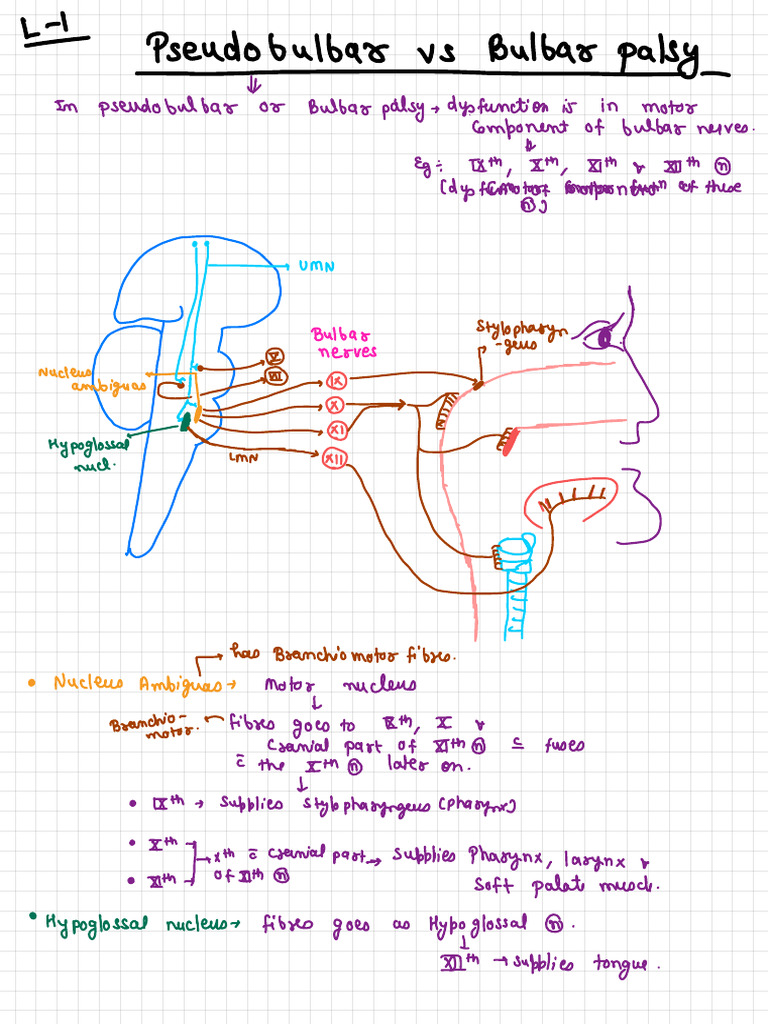 L-1
Pseudobulbar vs Bulbar palsy
In pseudobulbar or Bulbar palsy → dysfunction is in motor
component of bulbar nerves.
Eg: IXth, Xth, XIth & XIIth n
(dysfunction of these
n)
UMN
Stylopharyn
-geus
Bulbar
nerves
V
VII
Nucleus
ambiguas
IX
X
XI
XII
Hypoglossal
nucl.
LMN
has Branchiomotor fibres.
• Nucleus Ambiguas → Motor nucleus
↓
Branchio-
motor.
fibres goes to IXth, X &
Cranial part of XIth n c fuses
c̄ the Xth n later on.
↓
• IXth → Supplies Stylopharyngeus (Pharynx)
• Xth
• XIth
→ Xth c̄ cranial part → Supplies Pharynx, larynx &
of XIth n
Soft palate muscle.
• Hypoglossal nucleus → fibres goes as Hypoglossal n.
↓
XIIth → supplies tongue.